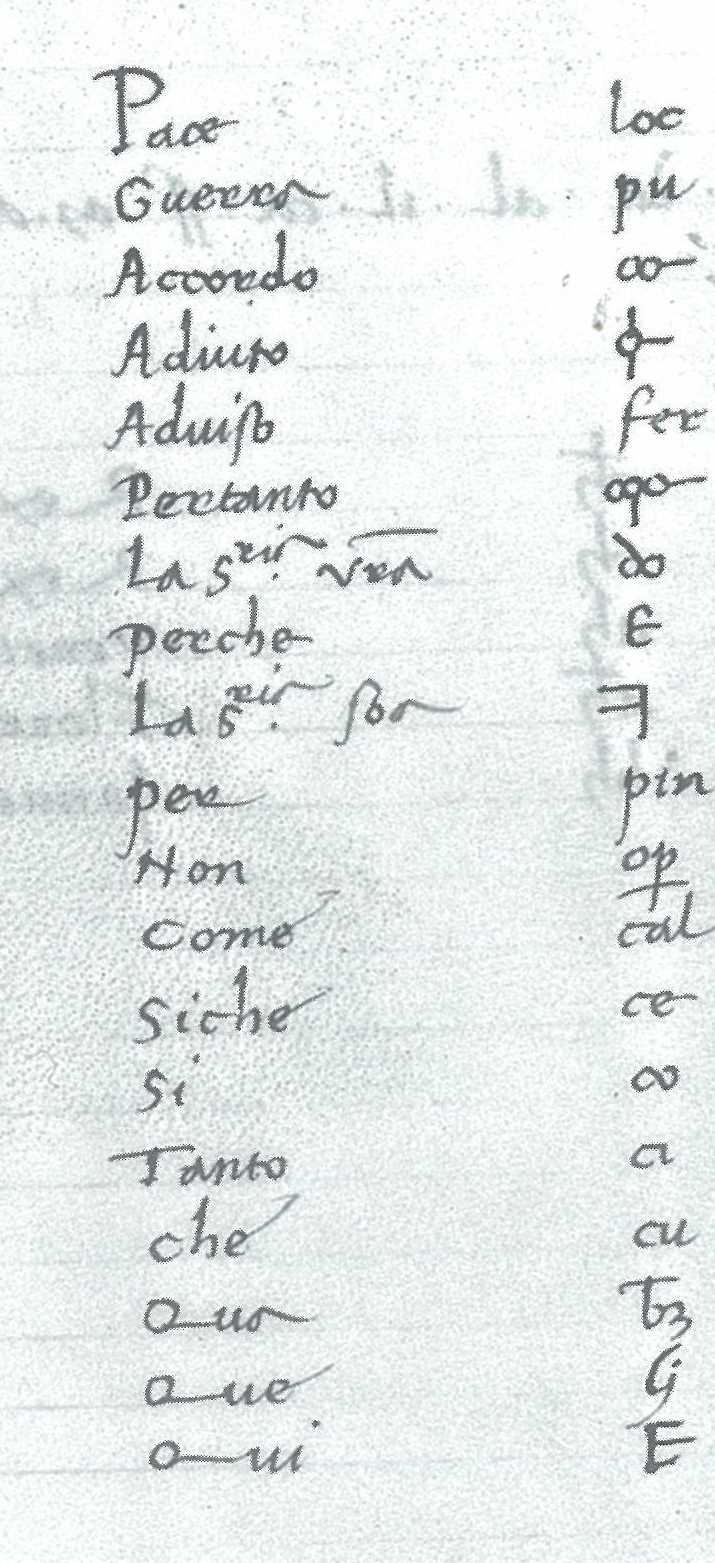 Pace loc
Guerra pu
Accordo
Adiuto
Aduiso fer
Pertanto
La S.ria vra
perche E
La S.ria sva
per pin
Non op
Come cal
Siche ce
Si
Tanto ci
che cu
Qua
Que G
Qui E